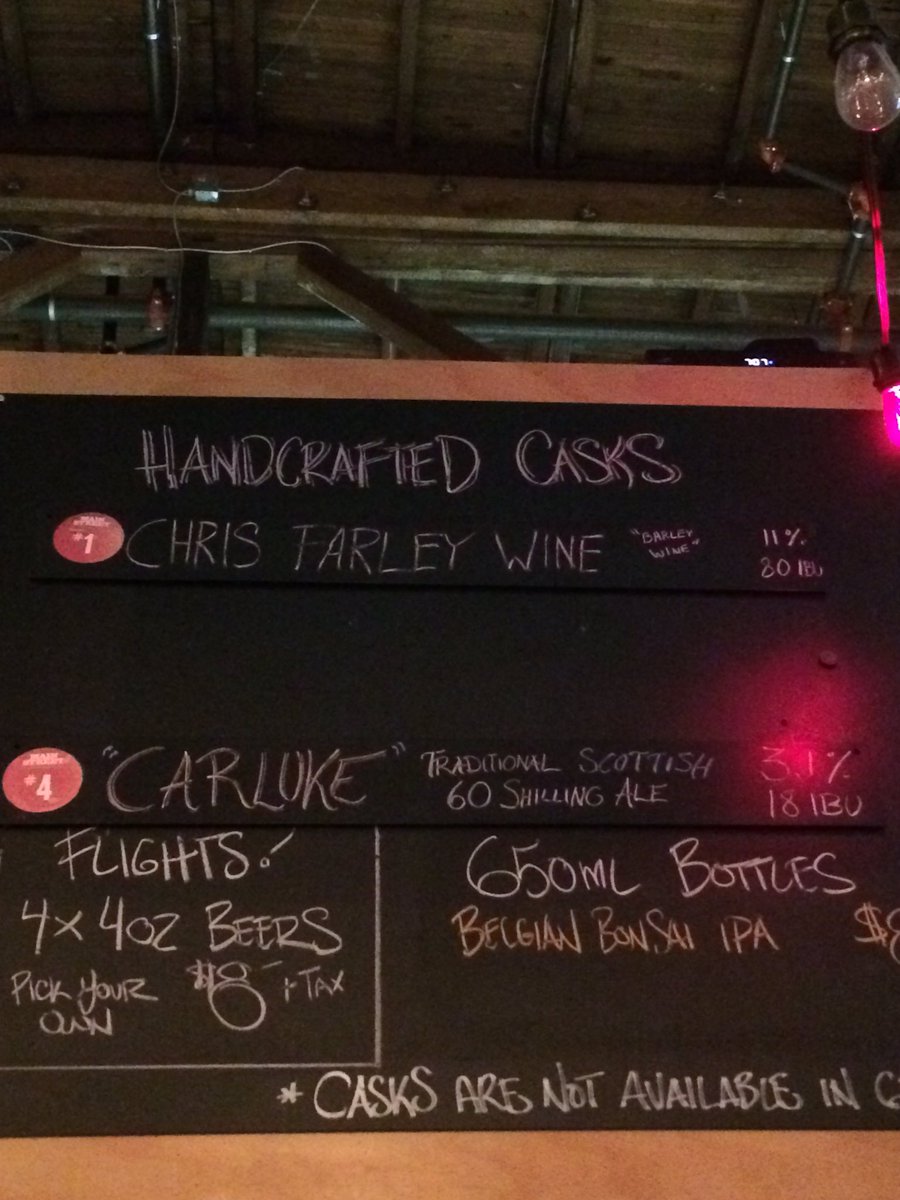 707
HANDCRAFTED CASKS
MAIN STREET
#1
CHRIS FARLEY WINE
"BARLEY
WINE"
11%
80 IBU
MAIN STREET
#4
"CARLUKE"
TRADITIONAL SCOTTISH
60 SHILLING ALE
3.1%
18 IBU
FLIGHTS!
4x 4OZ BEERS
PICK YOUR
OWN
$8 + TAX
650ML BOTTLES
BELGIAN BONSAI IPA
* CASKS ARE NOT AVAILABLE IN